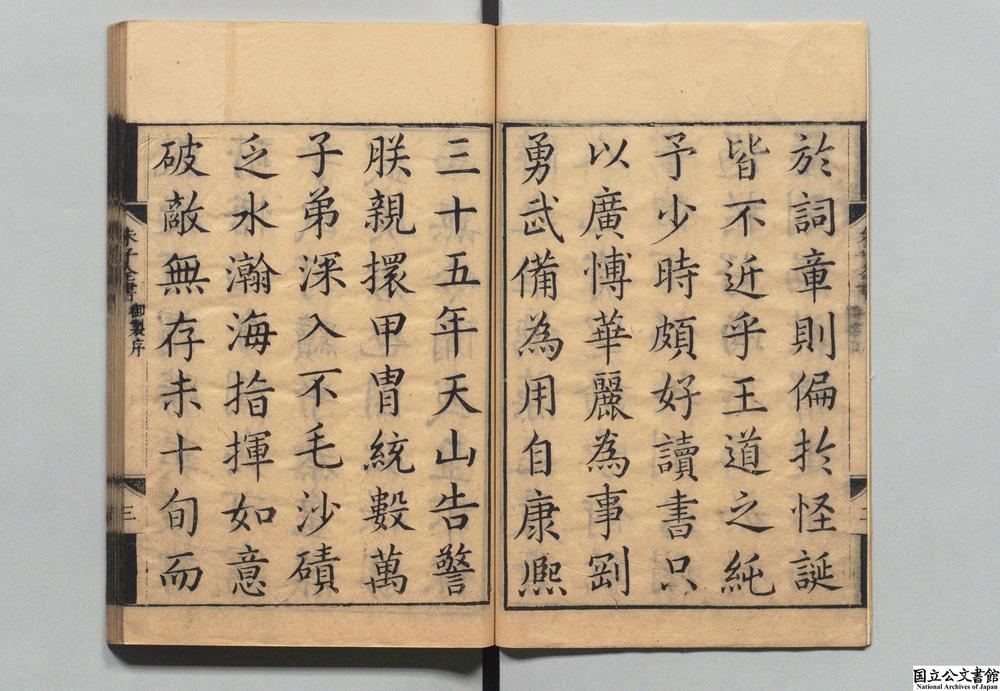 於詞章則偏於怪誕
皆不近乎王道之純
予少時頗好讀書只
以廣博華麗為事剛
勇武備為用自康熈
三十五年天山告警
朕親擐甲冑統數萬
子弟深入不毛沙磧
乏水瀚海指揮如意
破敵無存未十旬而
朱子全書
御製序
三
国立公文書館
National Archives of Japan